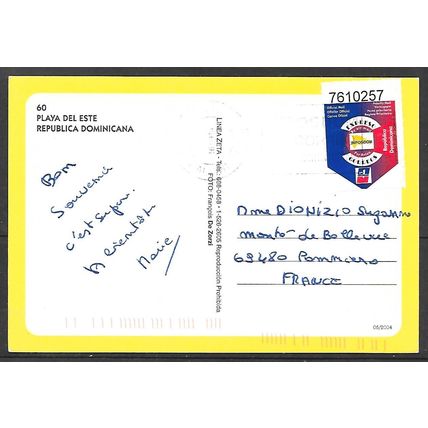 60
PLAYA DEL ESTE
REPUBLICA DOMINICANA
Bon
Souvenir
c'est super.
bientôt
Marie
LINEA ZETA - Tels.: 688-0408 • 1-829-2605 Reproducción Prohibida
FOTO: François De Zorzi
7610257
EXPRESO
INPOSDOM
CORREOS
República
Dominicana
Mme DIONIZIO Suzanne
Monté de Bellevue
69480 Pommiers
FRANCE
05/2004